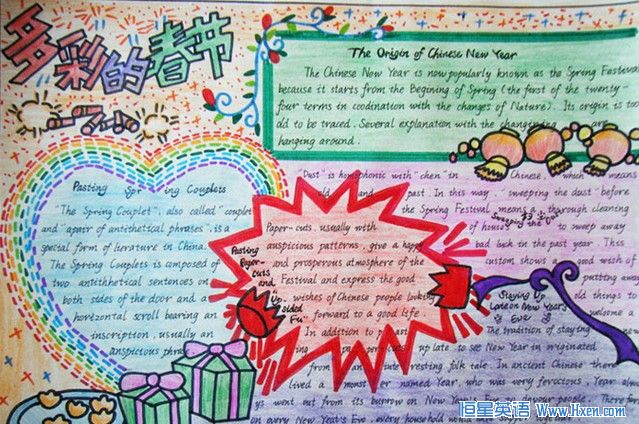 多彩的春节
The Origin of Chinese New Year
The Chinese New Year is now popularly known as the Spring Festival
because it starts from the Begining of Spring (the first of the twenty-
four terms in coodination with the changes of Nature). Its origin is too
old to be traced. Several explanation with the changining are
hanging around.
Pasting Spring Couplets
"The Spring Couplet", also called "couplet
and "apair of antithetical phrases", is a
special form of lierature in China.
The Spring Couplets is composed of
two antithetical sentences on
both sides of the door and a
horizontal scroll bearing an
inscription, usually an
anspicious phrase.
Pasting
Paper-
cuts
and
"Up-
sided
Fu"
Paper-cuts, usually with
auspicious patterns, give a happy
and prosperous atmosphere of the
Festival and express the good
wishes of Chinese people looking
forward to a good life.
In addition to
"Dust" is homophonic with "chen" in Chinese, which means
old and past. In this way, "sweeping the dust" before
the Spring Festival means a thorough cleaning
of houses to sweep away
bad luck in the past year. This
custom shows a good wish of
putting away
old things to
welcome a
Sweeping the Dust
Staying Up
Late on New Year's
Eve
The tradition of staying
up late to see New Year in originated
from an interesting folk tale. In ancient Chinese there
lived a monster named Year, who was very ferocious. Year
went out from its burrow on New Year's Eve to devour people. Therefore
on every New Year's Eve, every household would
恒星英语 Www.Hxen.com